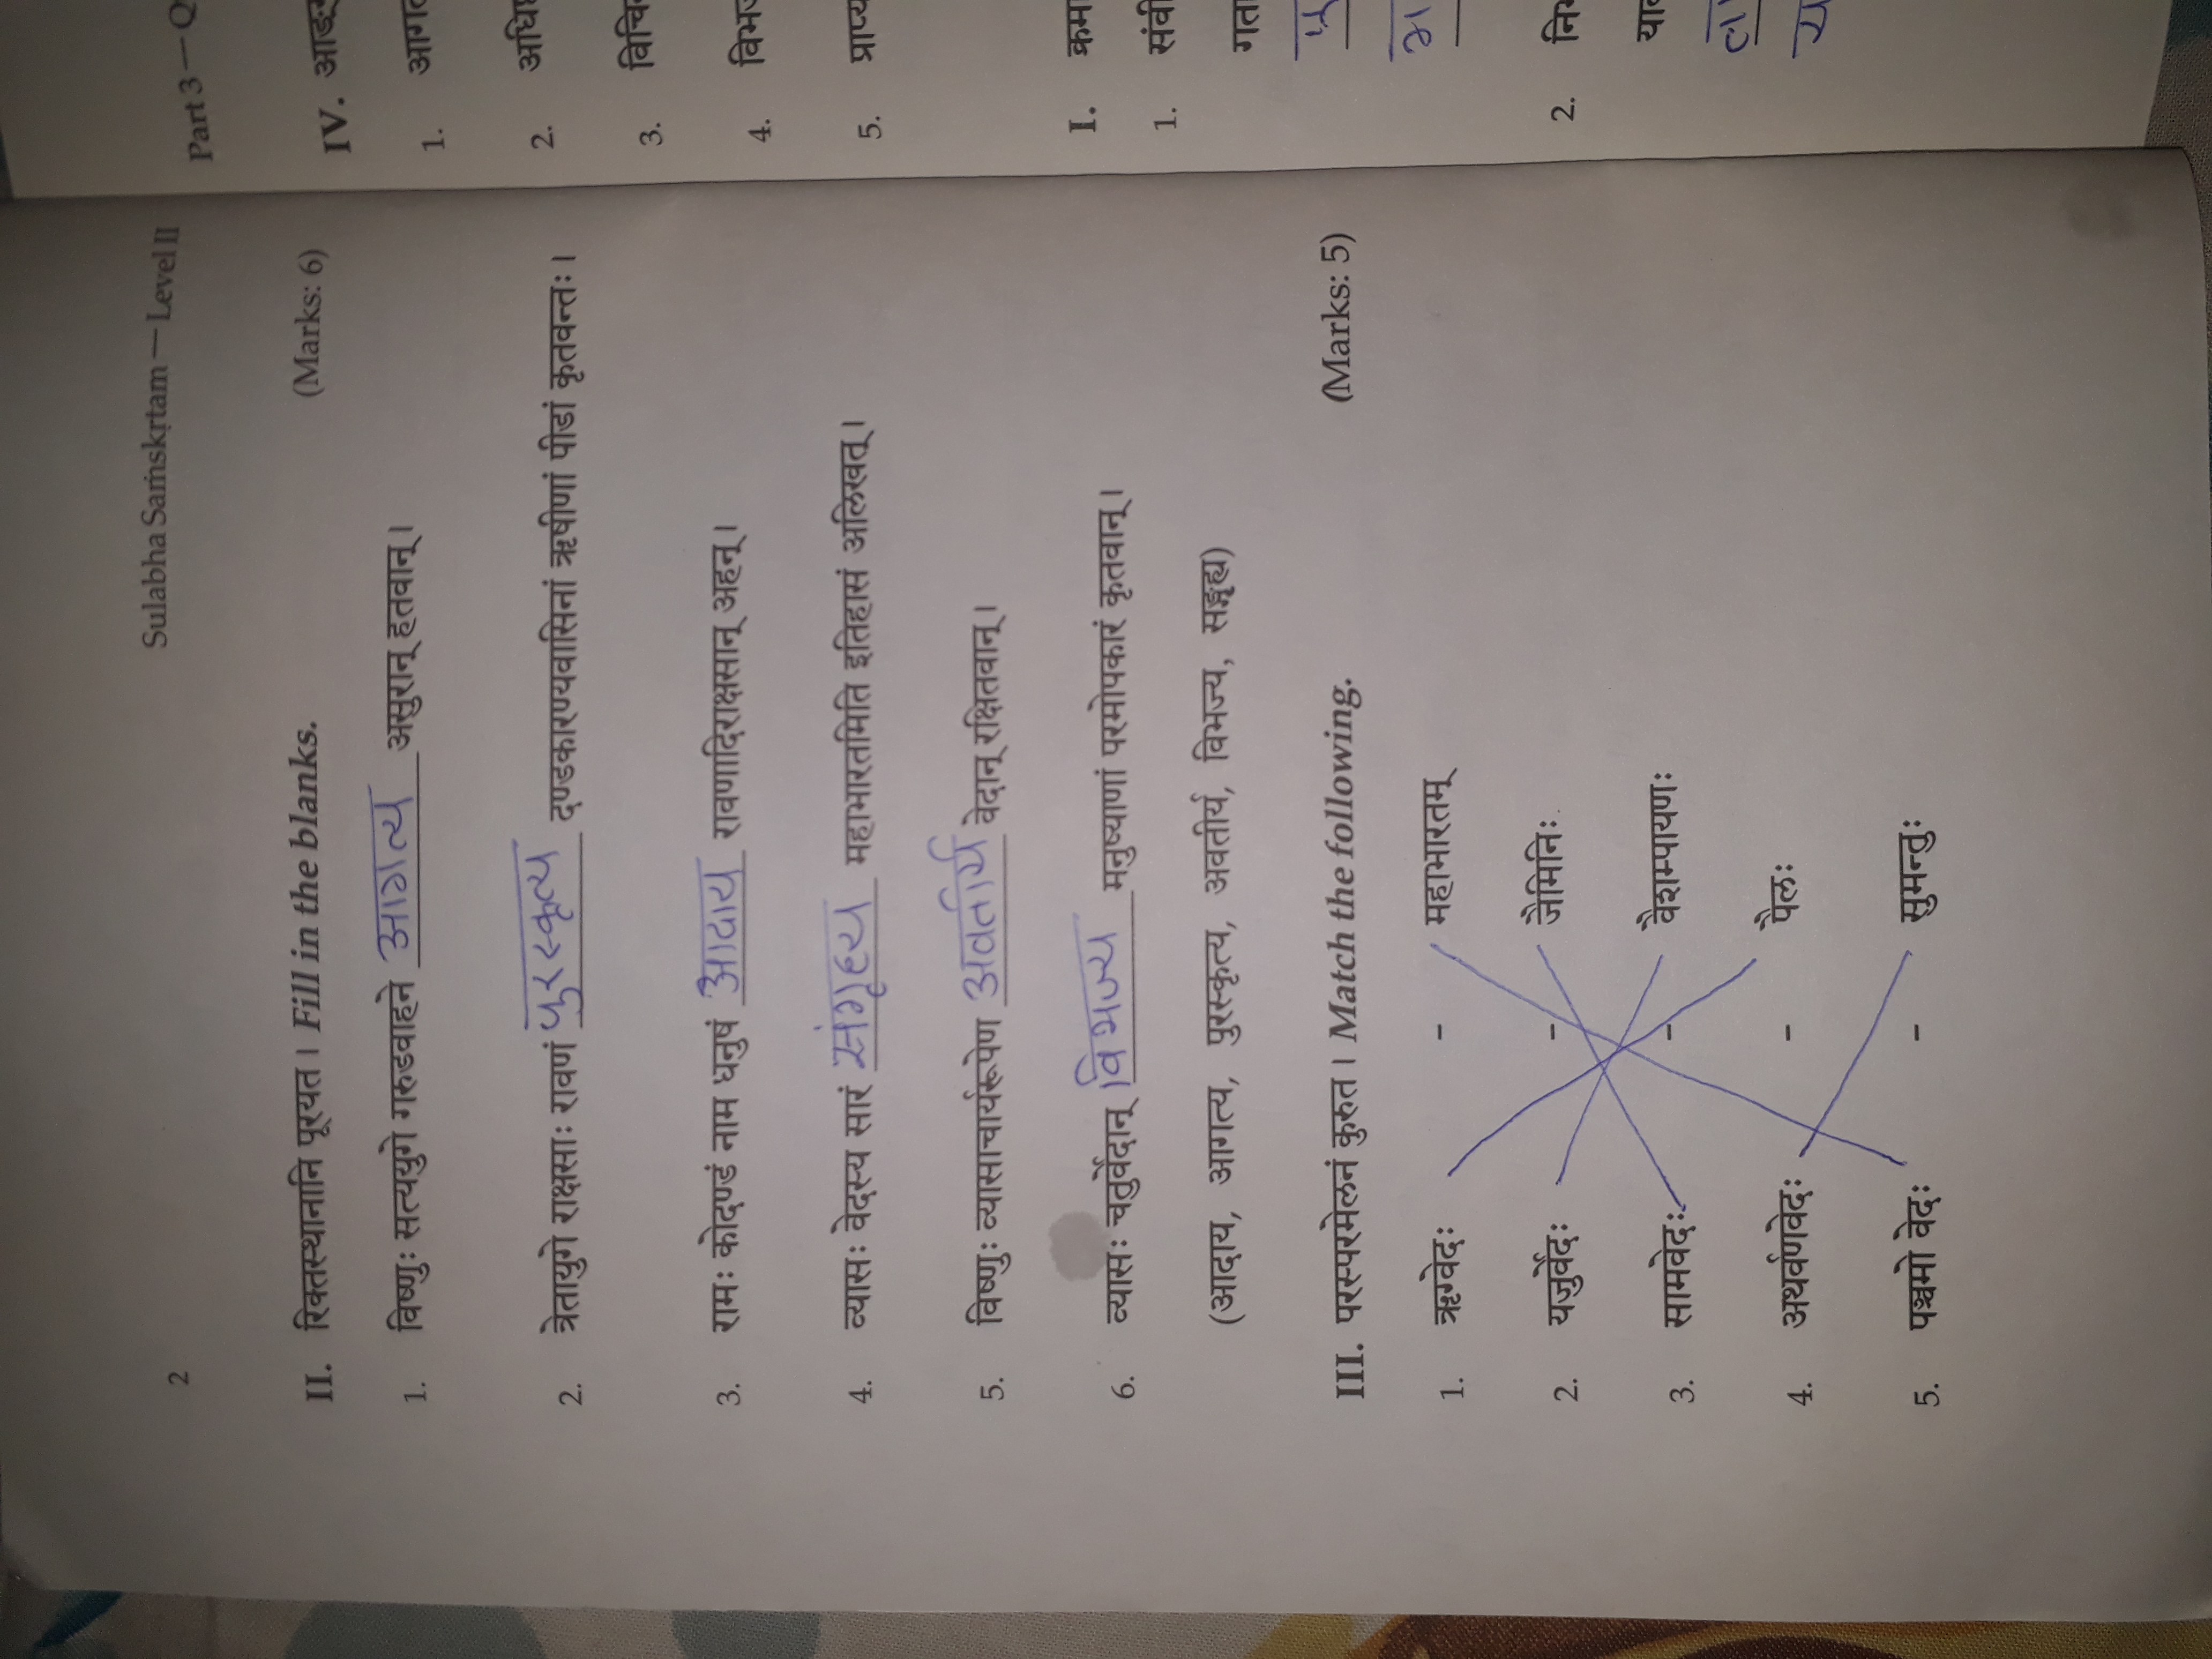 2
Sulabha Saṁskṛtam — Level II
II. रिक्तस्थानानि पूरयत। Fill in the blanks. (Marks: 6)
1. विष्णुः सत्ययुगे गरुडवाहने आगत्य असुरान् हतवान्।
2. त्रेतायुगे राक्षसाः रावणं पुरस्कृत्य दण्डकारण्यवासिनां ऋषीणां पीडां कृतवन्तः।
3. रामः कोदण्डं नाम धनुषं आदाय रावणादिराक्षसान् अहन्।
4. व्यासः वेदस्य सारं संगृह्य महाभारतमिति इतिहासं अलिखत्।
5. विष्णुः व्यासाचार्यरूपेण अवतीर्य वेदान् रक्षितवान्।
6. व्यासः चतुर्वेदान् विभज्य मनुष्याणां परमोपकारं कृतवान्।
(आदाय, आगत्य, पुरस्कृत्य, अवतीर्य, विभज्य, सङ्गृह्य)
III. परस्परमेलनं कुरुत। Match the following. (Marks: 5)
1. ऋग्वेदः - महाभारतम्
2. यजुर्वेदः - जैमिनिः
3. सामवेदः - वैशम्पायणः
4. अथर्वणवेदः - पैलः
5. पञ्चमो वेदः - सुमन्तुः
Part 3 —
IV.
1.
2.
3.
4.
5.
I.
1.
2.